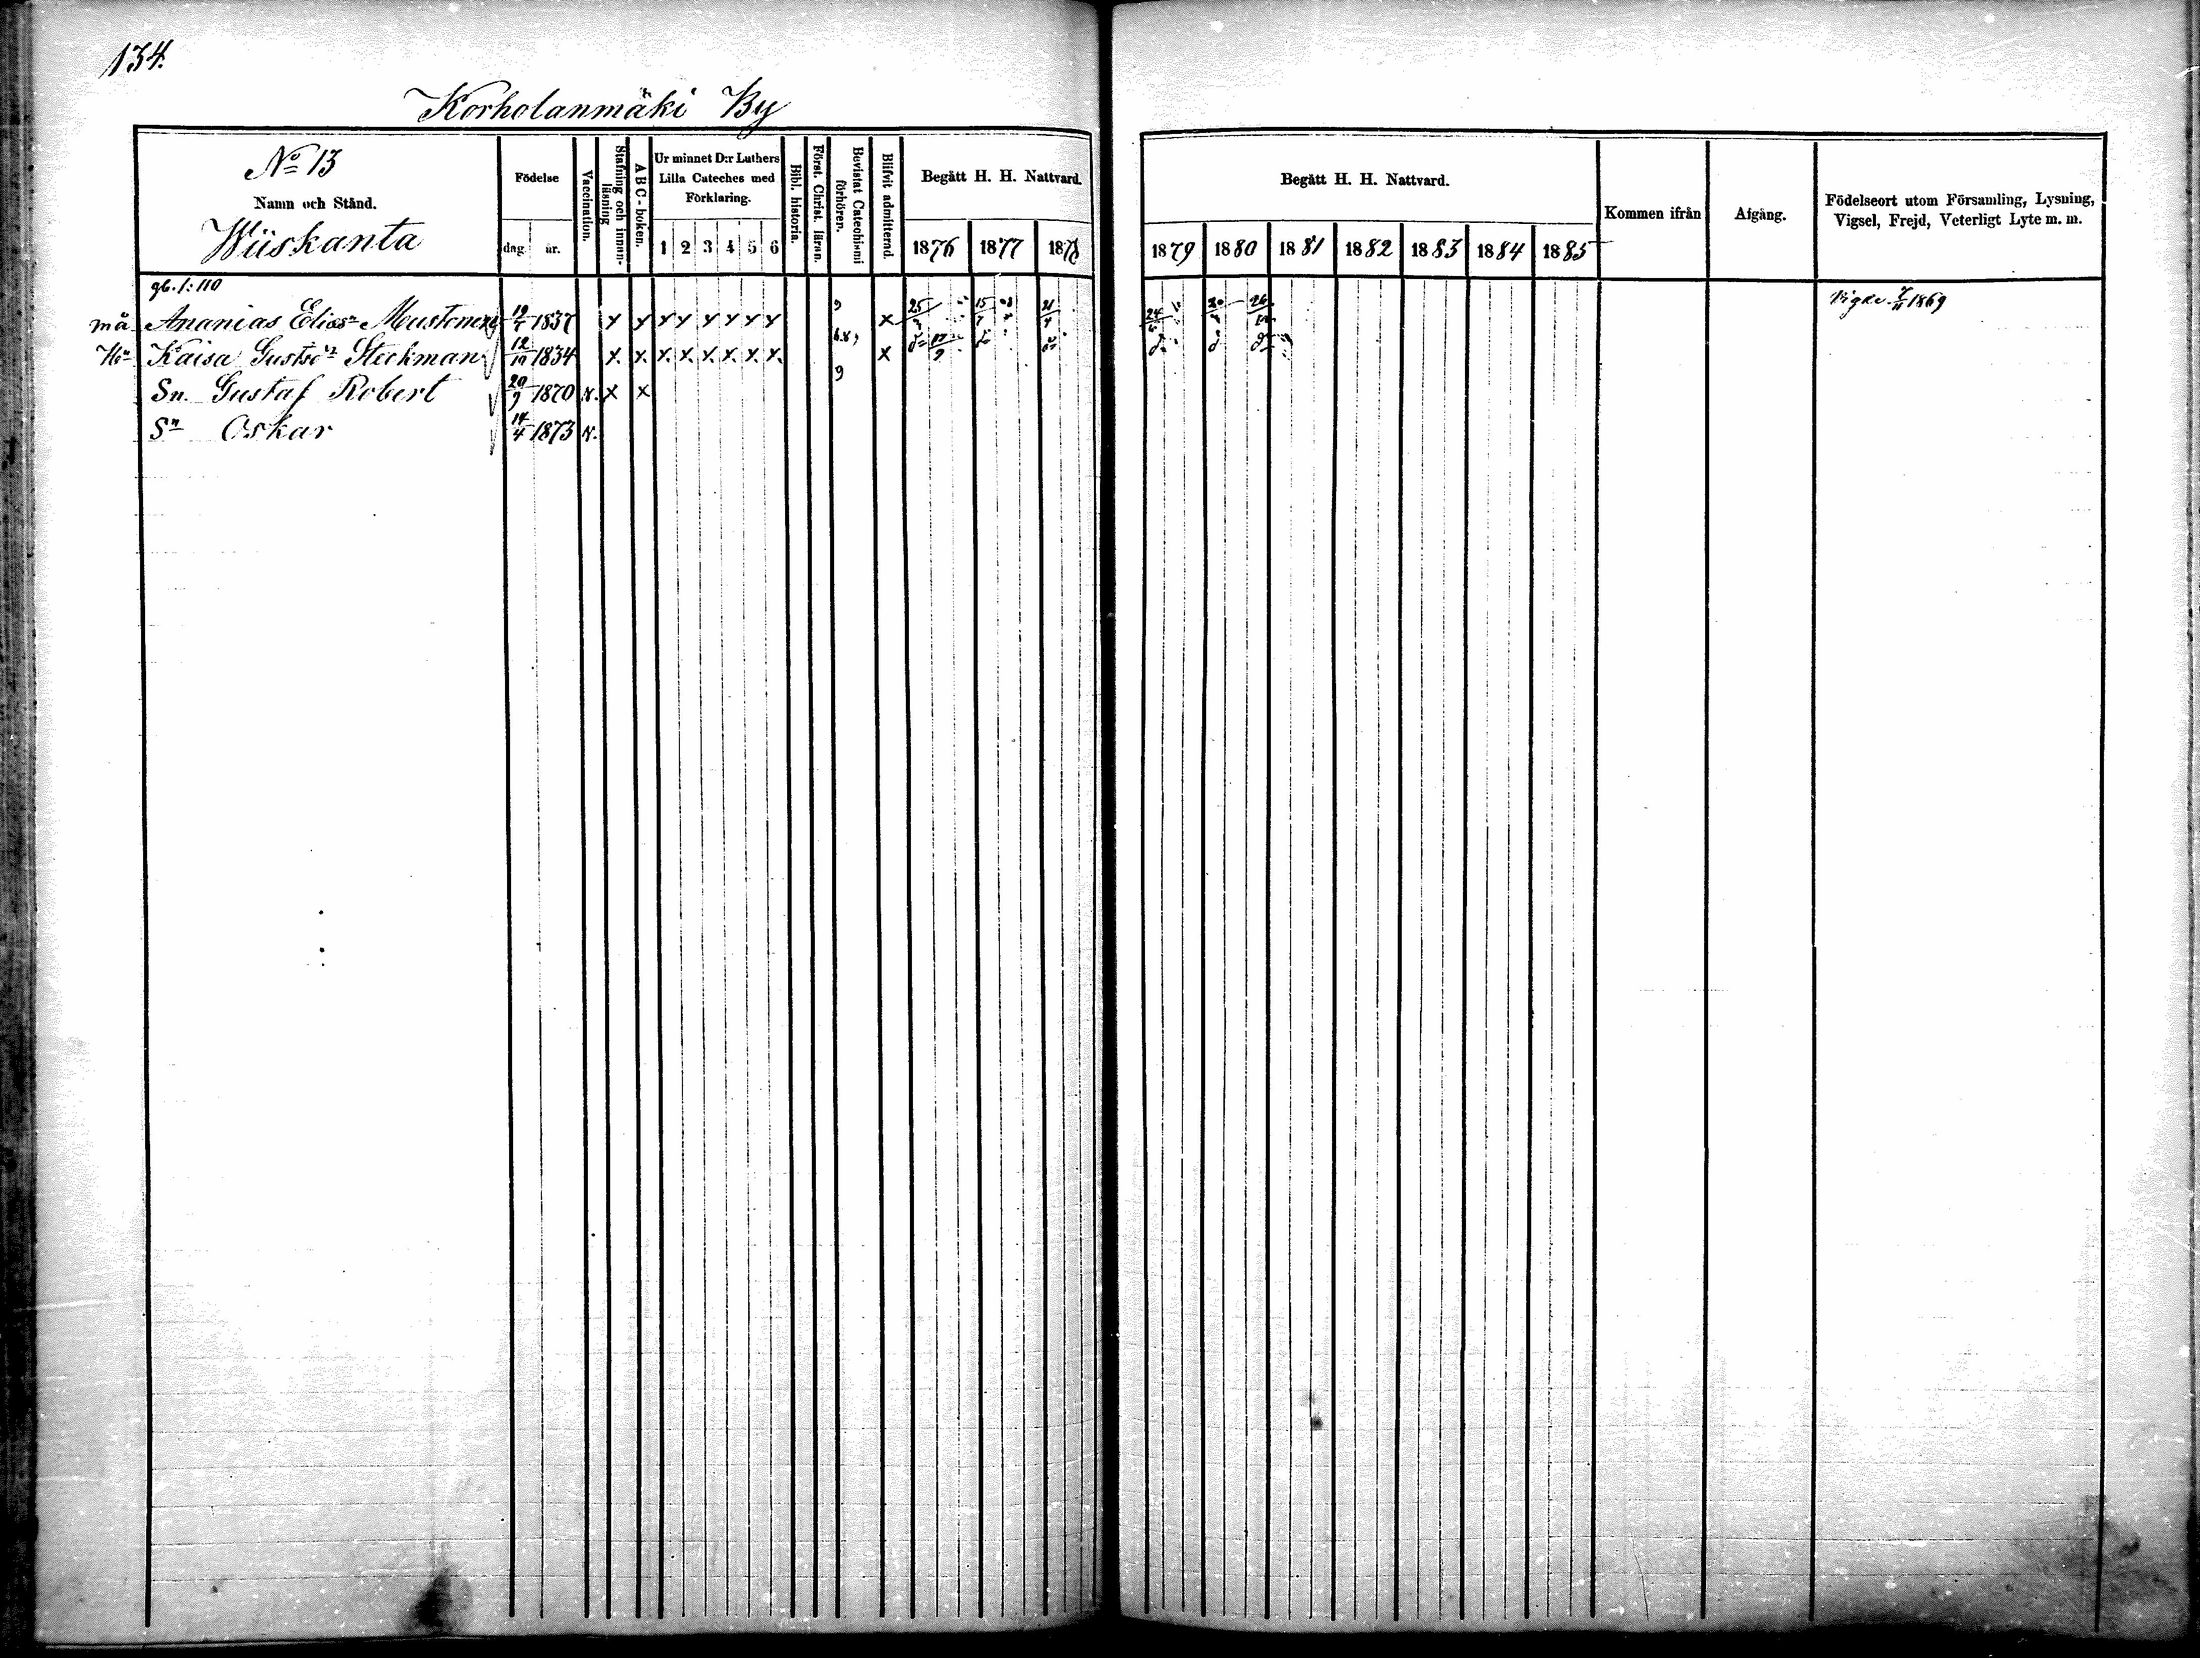 134.
Korholanmäki By
No 13
Namn och Stånd.
Wiiskanta
Födelse
dag. år.
Vaccination.
Stafning och innan-
läsning
A B C - boken.
Ur minnet D:r Luthers
Lilla Cateches med
Förklaring.
1 2 3 4 5 6
Bibl. historia.
Först. Christ. läran.
Bevistat Catechismi
förhören.
Blifvit admitterad.
Begått H. H. Nattvard.
1876 1877 1878
Begått H. H. Nattvard.
1879 1880 1881 1882 1883 1884 1885
Kommen ifrån
Afgång.
Födelseort utom Församling, Lysning,
Vigsel, Frejd, Veterligt Lyte m. m.
gb. 1: 110
må Ananias Elias Mustonen 1837 x x x x x x x x 9 x 25 15 21 24 20 26 1869
Kaisa Gusts Steckman 12/10 1834 x x x x x x x x x
Sn. Gustaf Robert 29/9 1870 v. x x 9
Sn Oskar 14/4 1873 v.